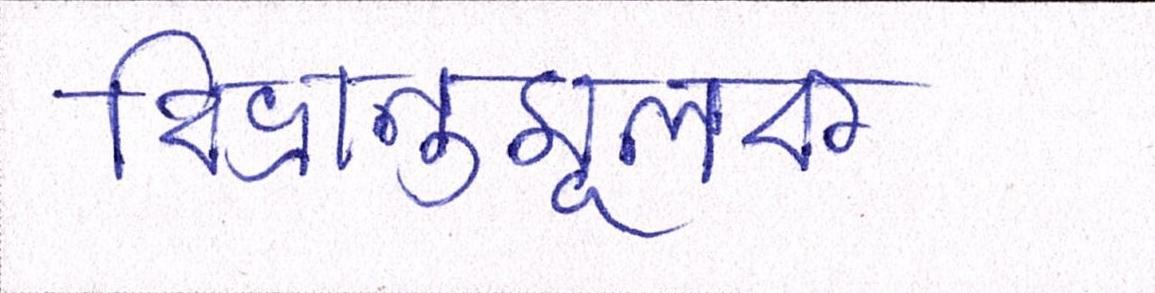 বিভ্রান্তমূলক